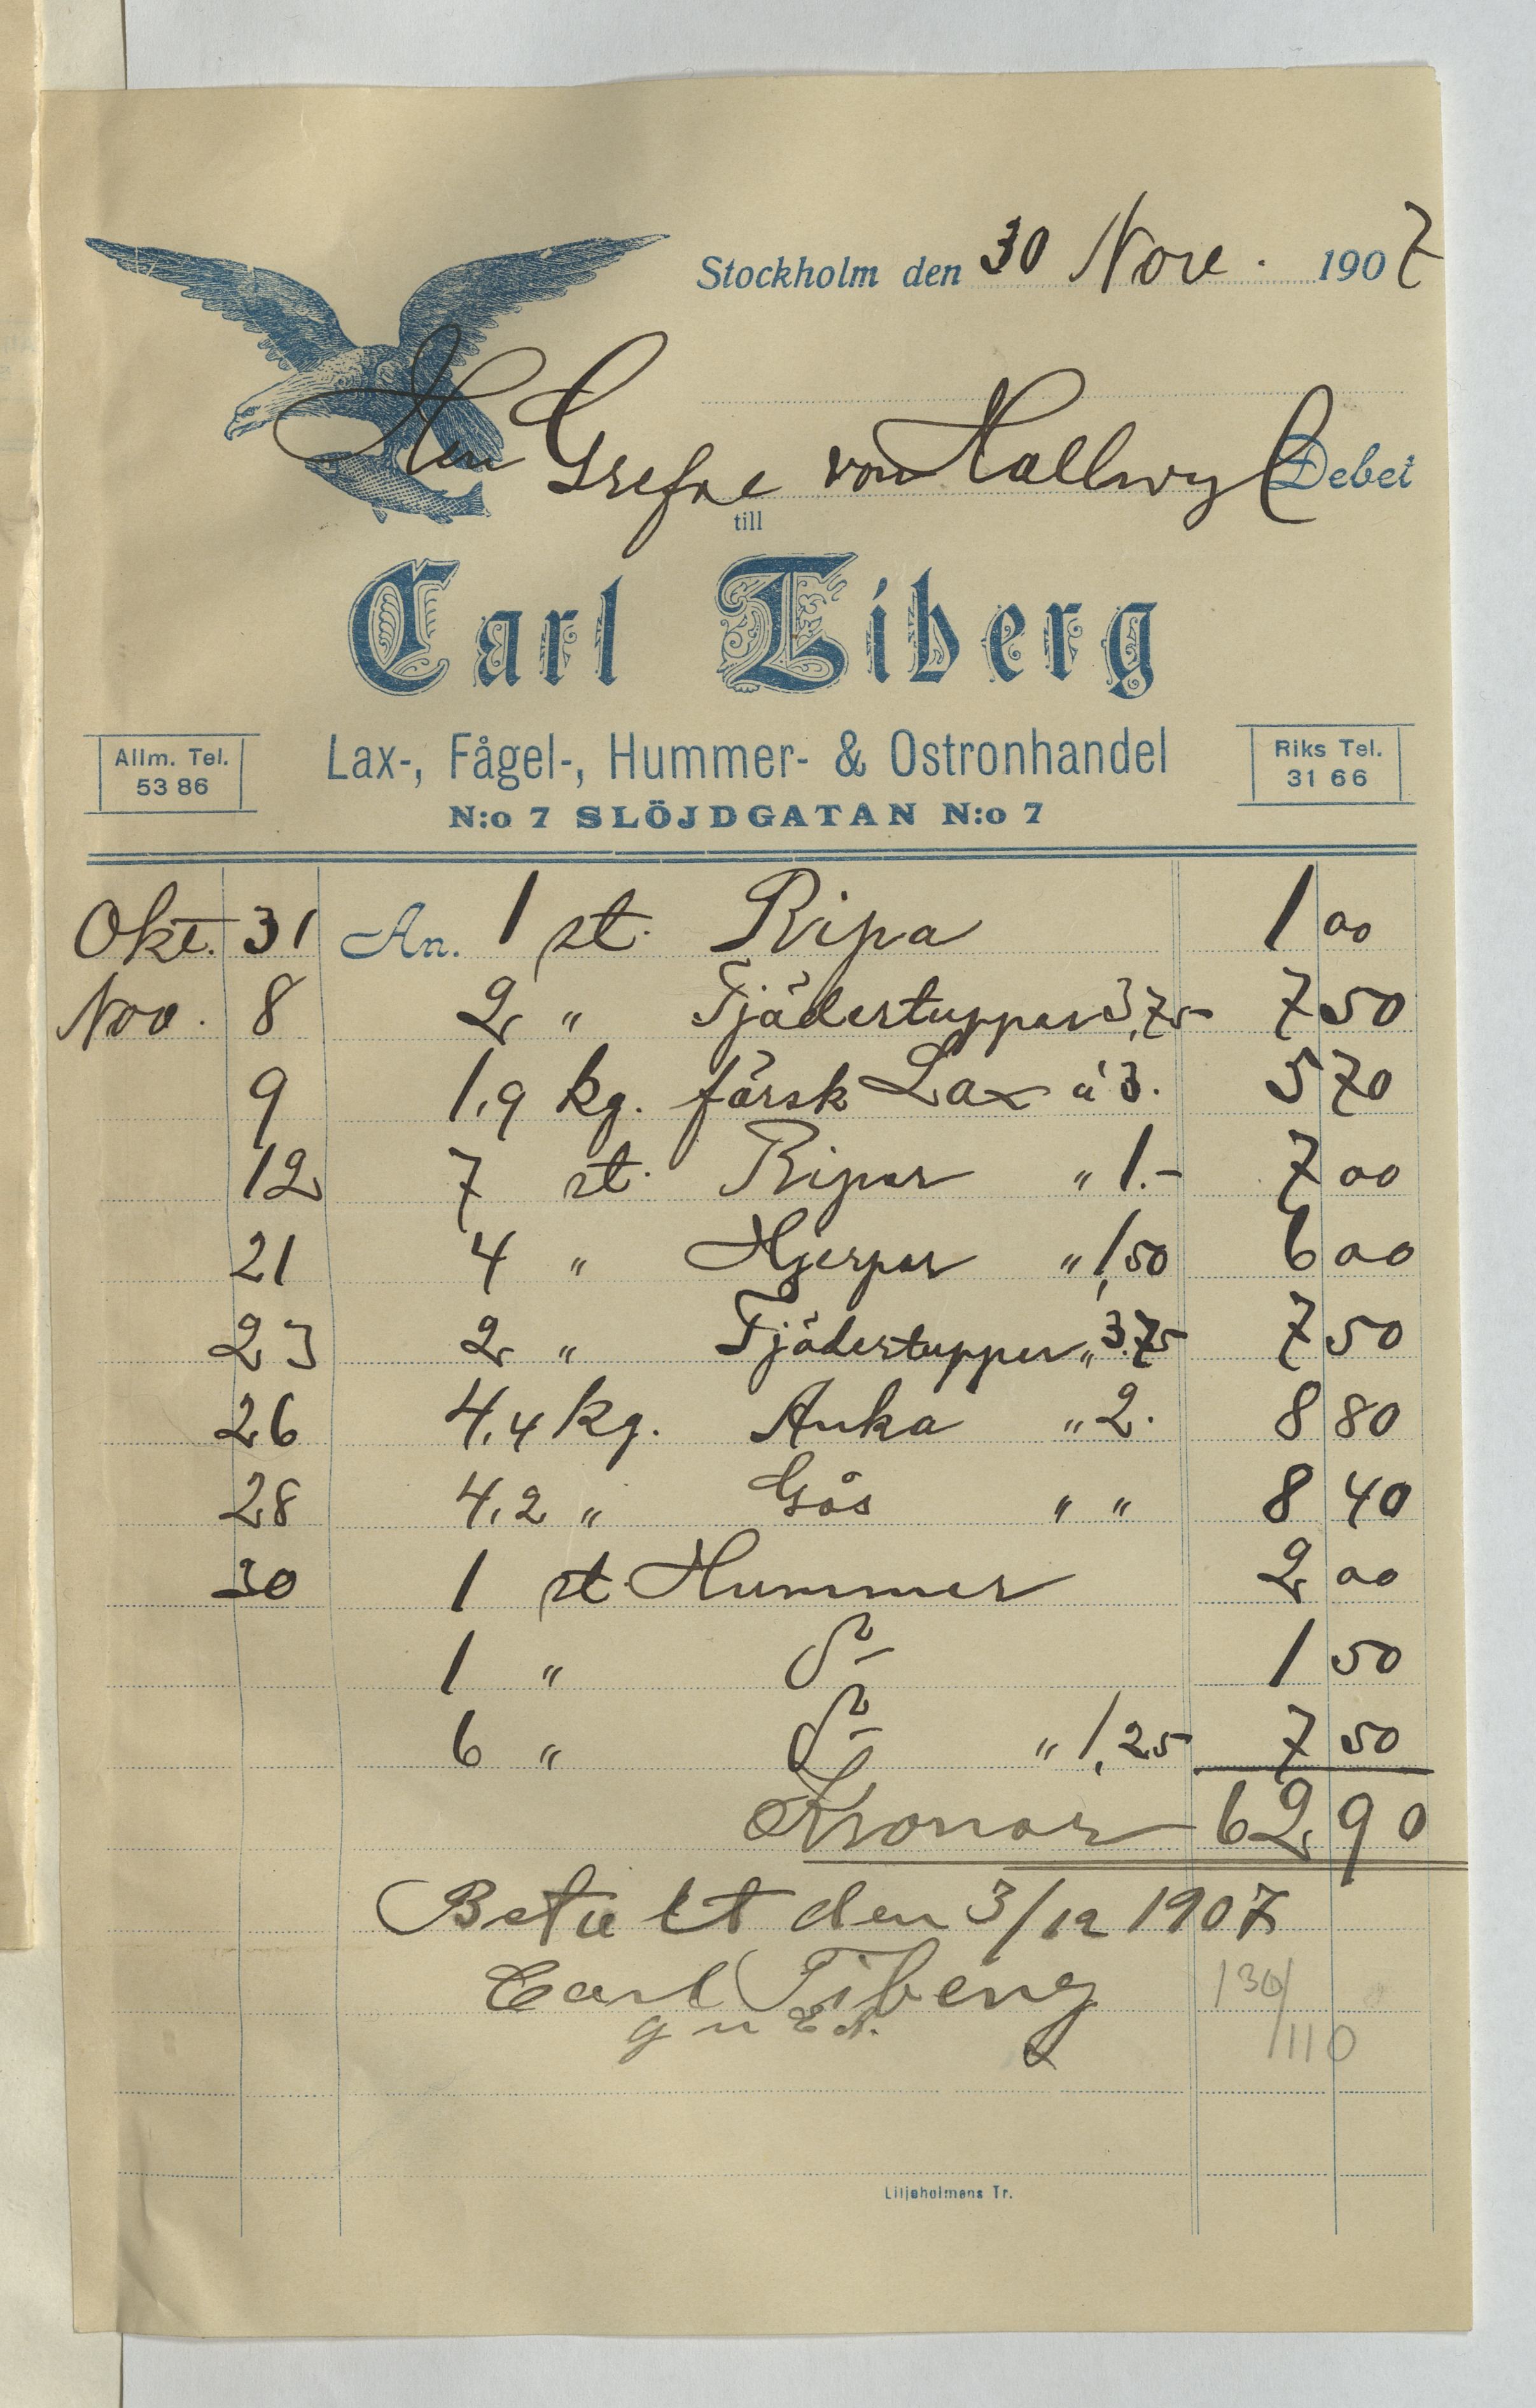 Stockholm den 30 Nove. 1907
Herr Grefve von Hallwyl Debet
till
Carl Tiberg
Allm. Tel.
53 86
Lax-, Fågel-, Hummer- & Ostronhandel
Riks Tel.
31 66
N:o 7 SLÖJDGATAN N:o 7
Okt. 31 An. 1 st. Ripa 1 00
Nov. 8 2 " Tjädertuppar 3,75 7 50
9 1,9 kg. färsk Lax á 3. 5 70
12 7 st. Ripor " 1.- 7 00
21 4 " Hjerpar " 1,50 6 00
23 2 " Tjädertuppar " 3.75 7 50
26 4,4 kg. Anka " 2. 8 80
28 4,2 " Gås " " 8 40
30 1 st. Hummer 2 00
1 " Do 1 50
6 " Do " 1,25 7 50
Kronor 62 90
Betalt den 3/12 1907
Carl Tiberg
130/110
Liljeholmens Tr.